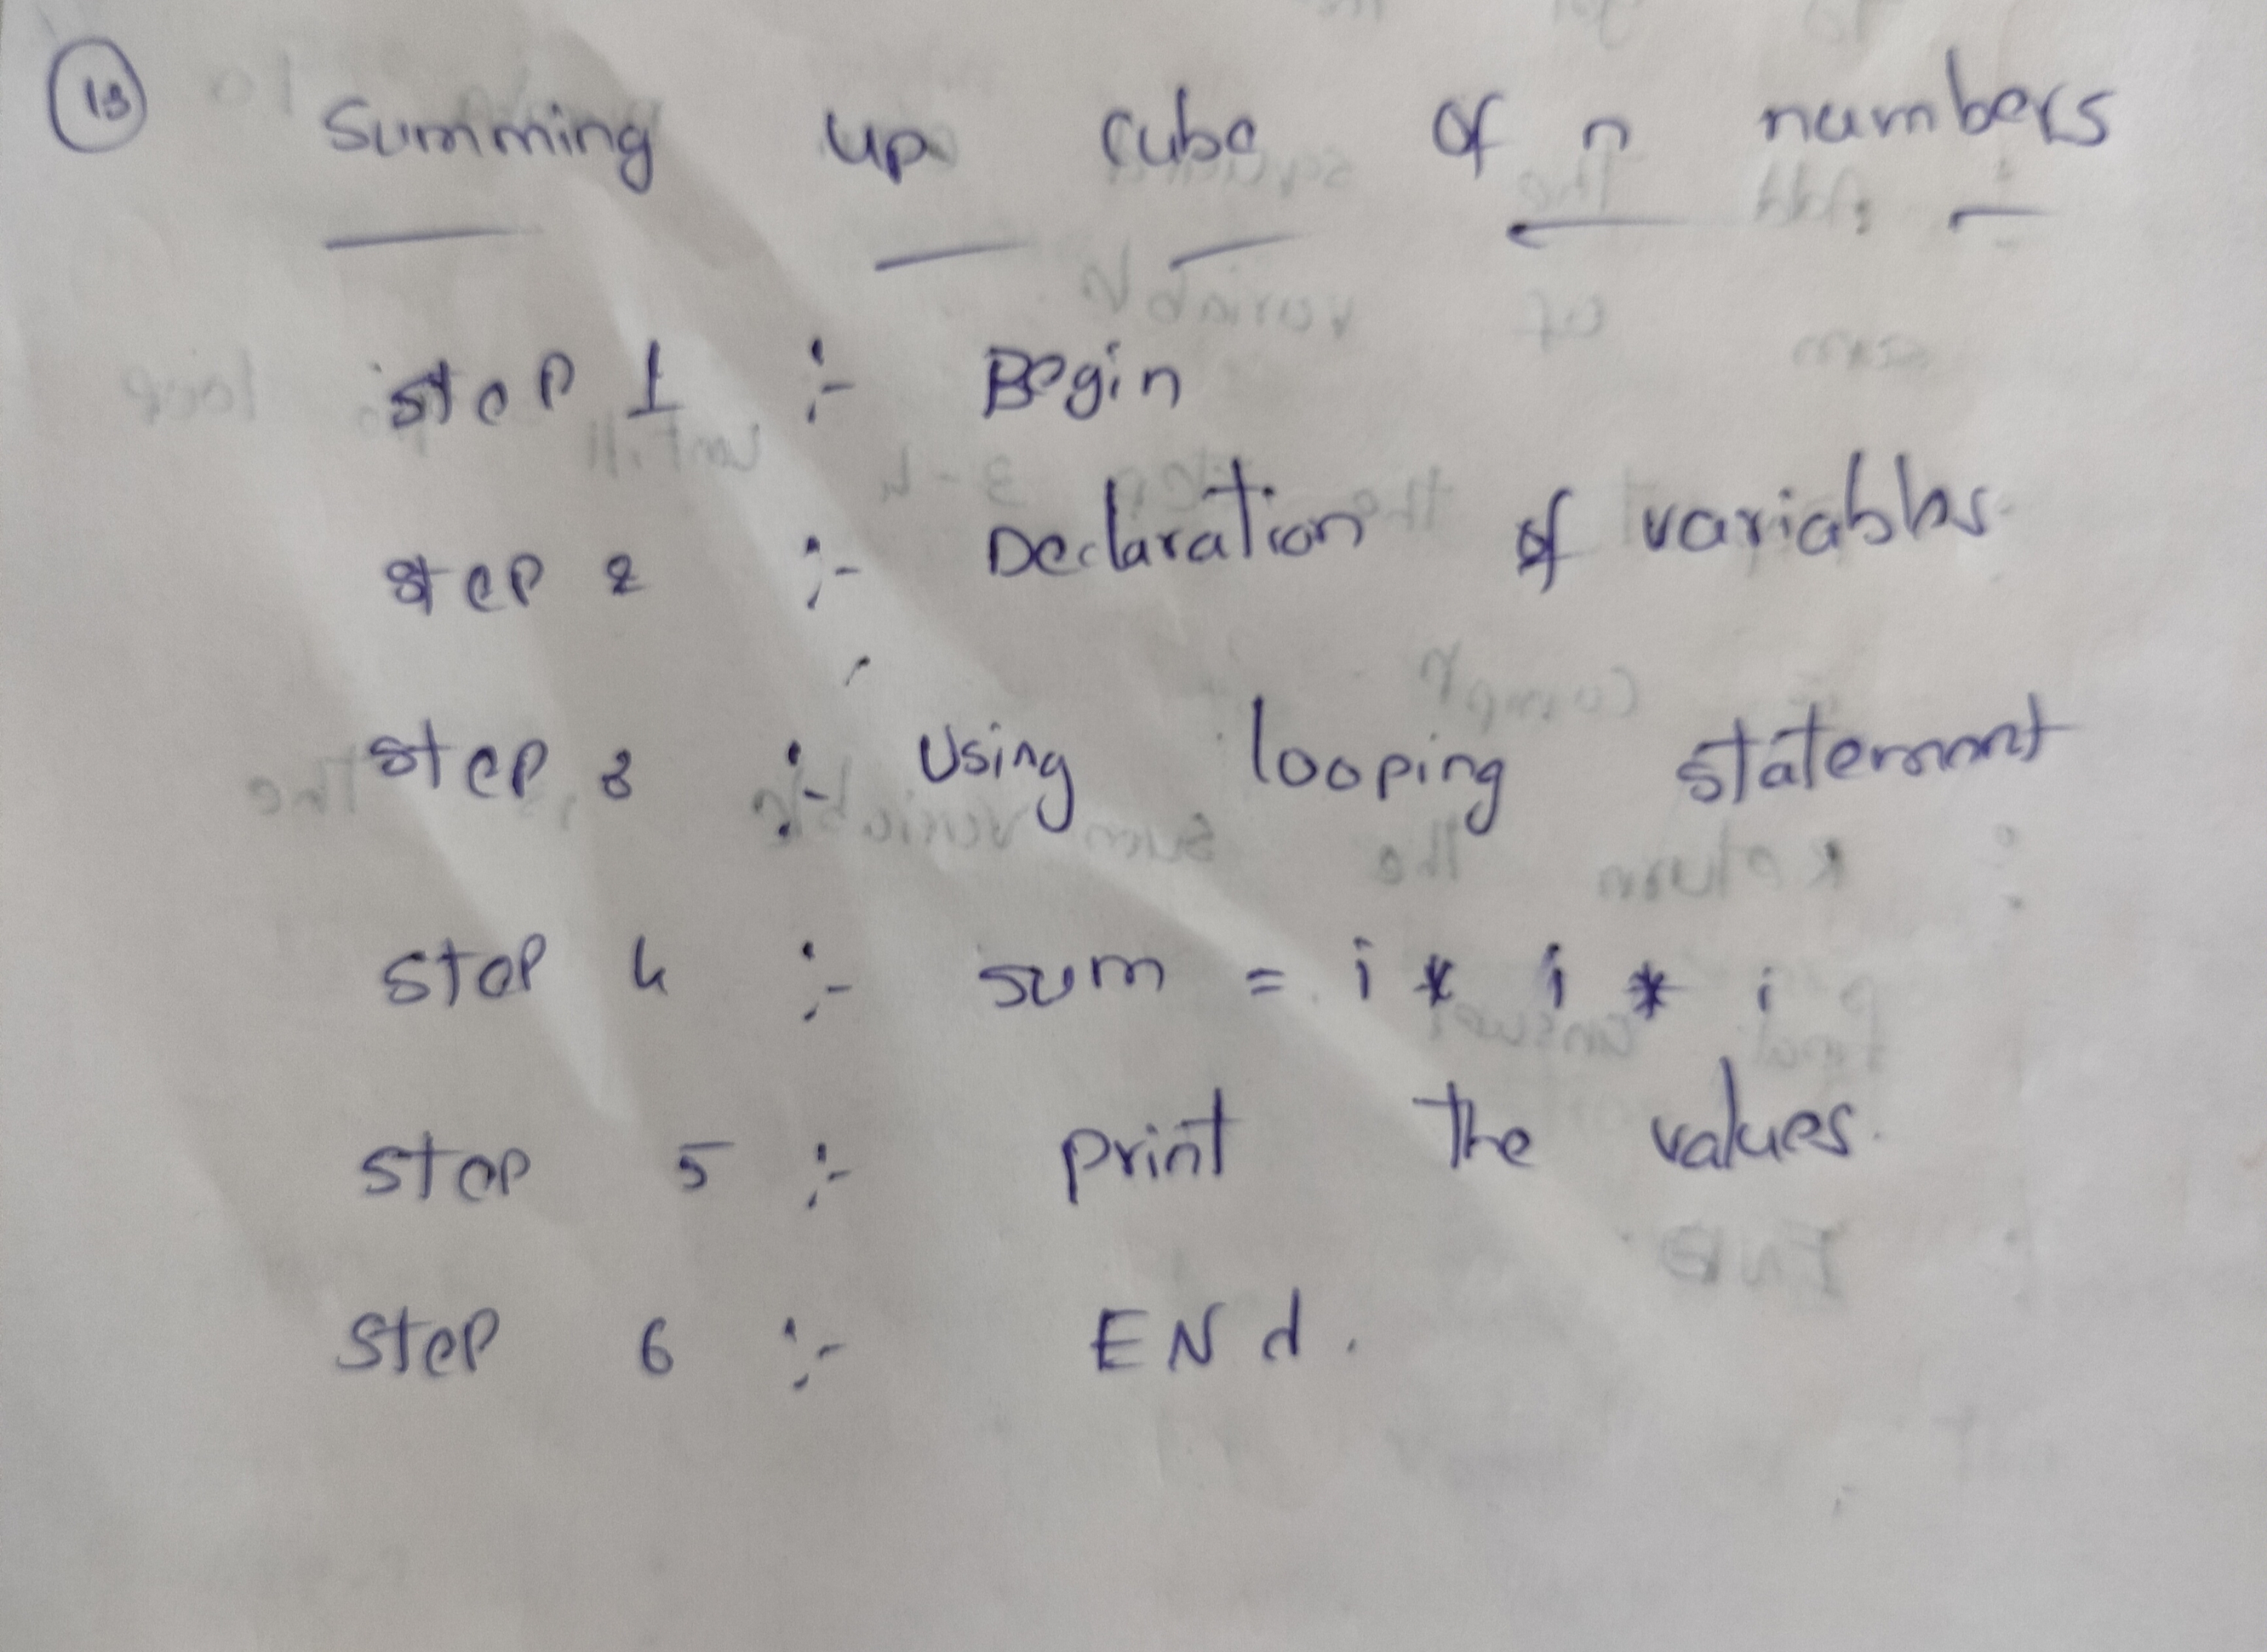 13 Summing up cube of n numbers
Step 1 :- Begin
Step 2 :- Declaration of variables.
Step 3 :- Using looping statement
Step 4 :- sum = i * i * i
Step 5 :- print the values.
Step 6 :- ENd.